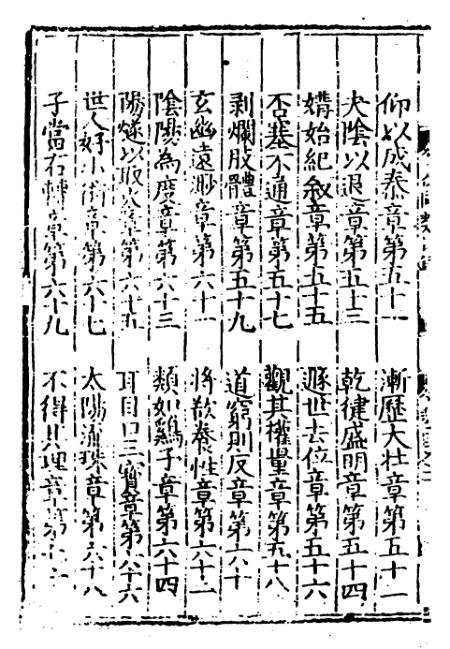 仰以成泰章第五十一 漸歷大壯章第五十二
夬陰以退章第五十三 乾健盛明章第五十四
媾始紀叙章第五十五 遯世去位章第五十六
否塞不通章第五十七 觀其權量章第五十八
剥爛肢體章第五十九 道窮則反章第六十
玄幽遠渺章第六十一 將欲養性章第六十二
陰陽為度章第六十三 類如鷄子章第六十四
陽燧以取火章第六十五 耳目口三寳章第六十六
世人好小術章第六十七 太陽流珠章第六十八
子當右轉章第六十九 不得其理章第